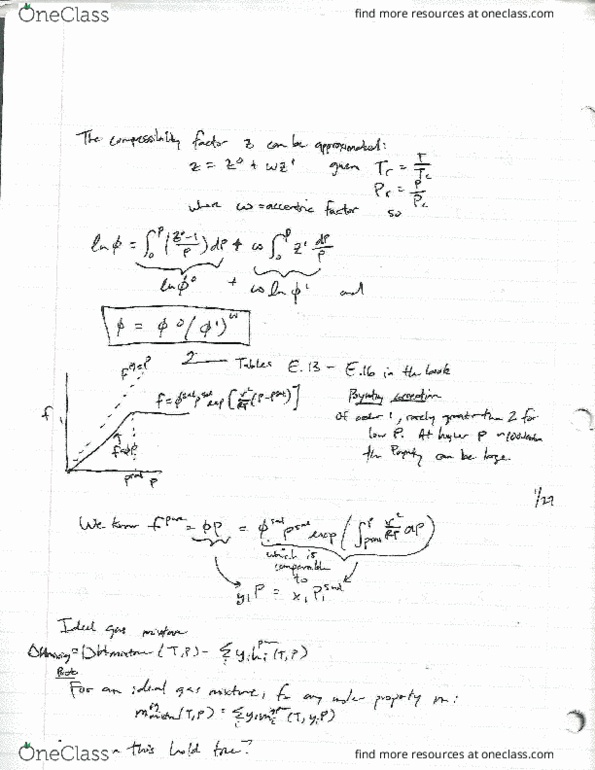 OneClass
find more resources at oneclass.com
The compressibility factor z can be approximated:
z = z⁰ + ωz¹ given Tr = T/Tc
Pr = P/Pc
where ω = accentric factor so
ln ϕ = ∫₀ᴾ (z⁰-1/P) dP + ω ∫₀ᴾ z¹ dP/P
ln ϕ⁰ + ω ln ϕ¹ and
ϕ = ϕ⁰ (ϕ¹)^ω
Tables E.13 – E.16 in the book
f = ϕ^sat P^sat exp[V^L/RT (P-P^sat)]
Poynting correction
of order 1, rarely greater than 2 for
low P. At higher P
the Poynting can be large.
f
f=ϕP
P^sat P
1/27
We know f^pure = ϕP = ϕ^sat P^sat exp(∫ V^L/RT dP)
which is
comparable
to
y₁P = x₁P₁^sat
Ideal gas mixture
(T,P) - Σ yᵢhᵢ^pure (T,P)
For an ideal gas mixture, for any molar property m:
(T,P) = Σ yᵢmᵢ (T, yᵢP)
this hold true?
OneClass
find more resources at oneclass.com